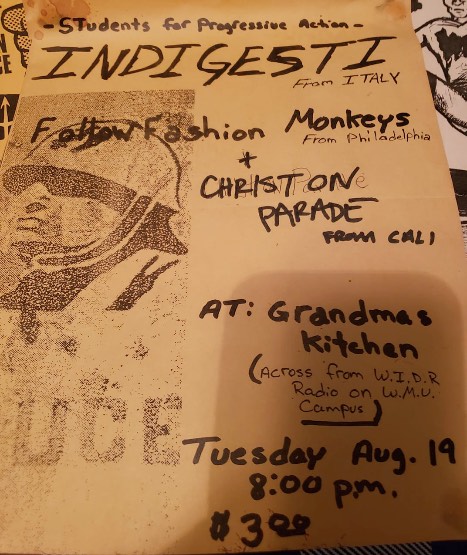 - STudents for Progressive Action -
INDIGESTI
From ITALY
Follow Fashion Monkeys
From Philadelphia
+
CHRIST ON
PARADE
FROM CALI
AT: Grandmas
Kitchen
(Across from W.I.D.R
Radio on W.M.U.
Campus)
Tuesday Aug. 19
8:00 p.m.
$3.00